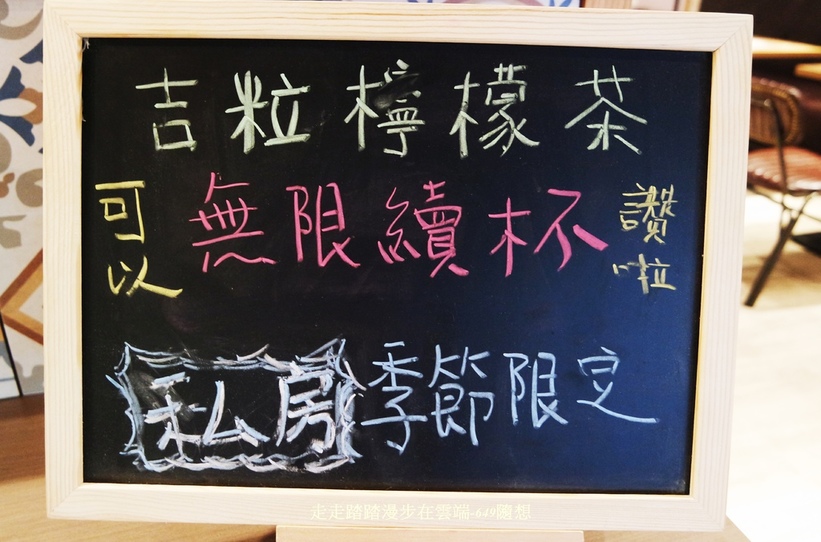 吉粒檸檬茶
可以 無限續杯 讚啦
私房 季節限定
走走踏踏漫步在雲端-649隨想